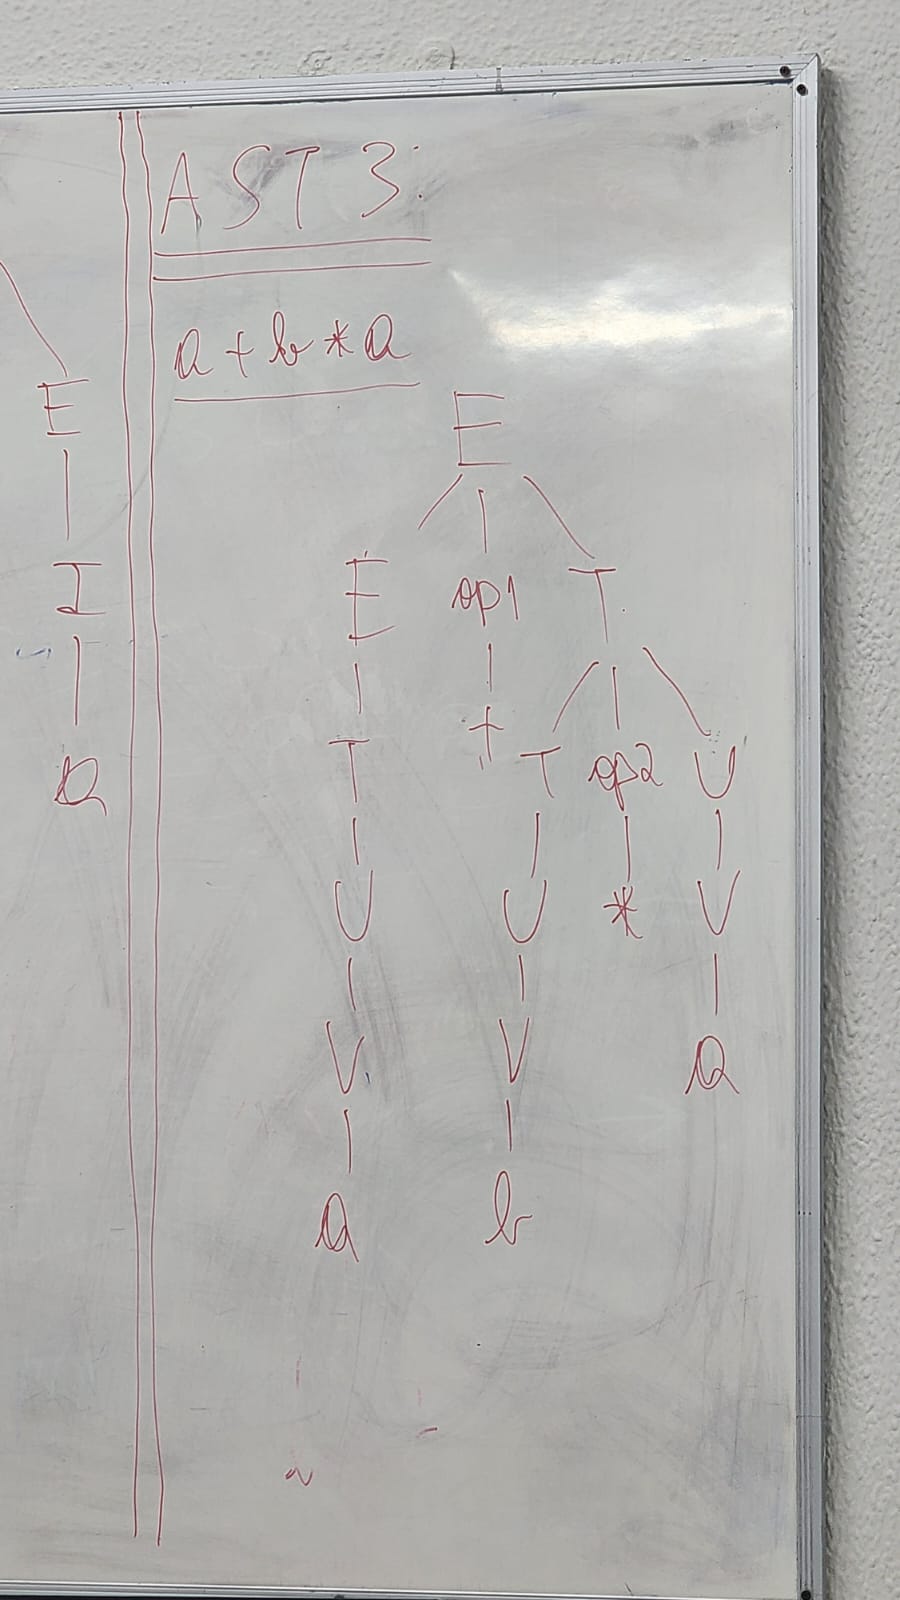 AST 3:
a + b * a
E
E
E op1 T
I
+
a
T
T op2 U
U
U
*
V
V
V
a
a
b